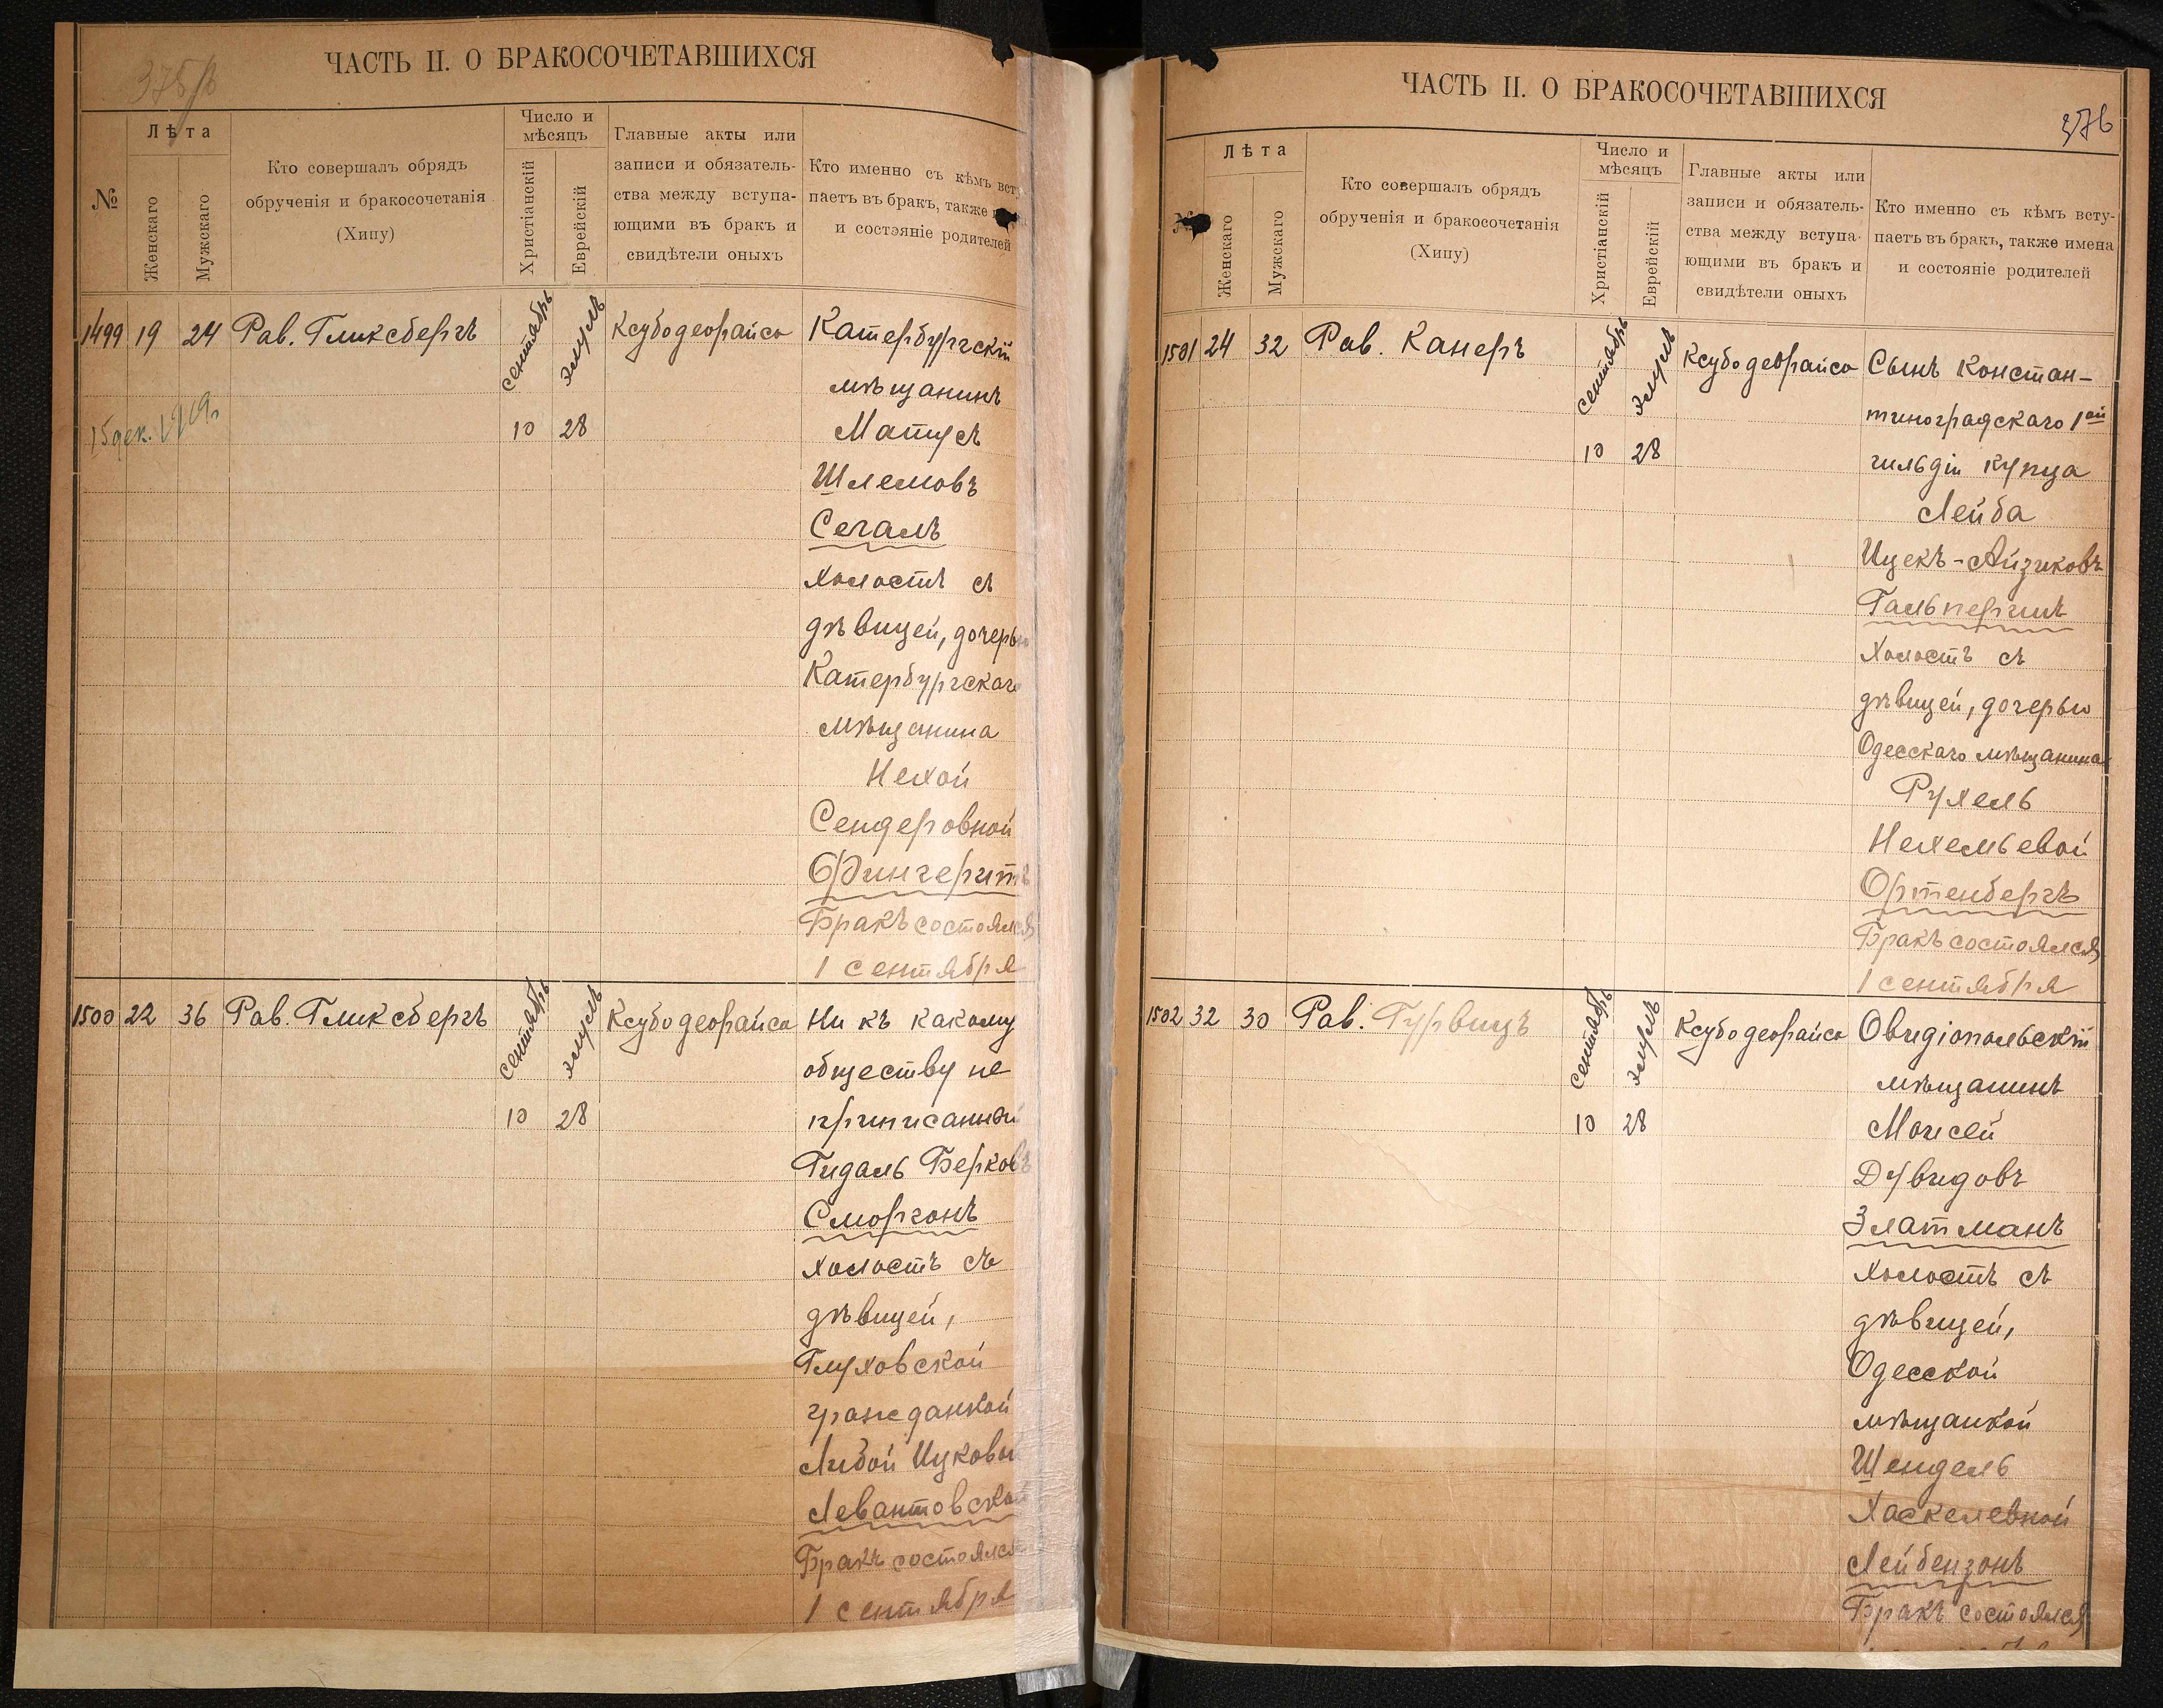 375/б
ЧАСТЬ II. О БРАКОСОЧЕТАВШИХСЯ
№
Лѣта
Женскаго
Мужскаго
Кто совершалъ обрядъ
обрученія и бракосочетанія
(Хипу)
Число и
мѣсяцъ
Христіанскій
Еврейскій
Главные акты или
записи и обязатель-
ства между вступа-
ющими въ бракъ и
свидѣтели оныхъ
Кто именно съ кѣмъ всту
паетъ въ бракъ, также
и состояніе родителей
1499 19 24 Рав. Гликсбергъ сентябрь элулъ Ксубо деорайса Катербургскій
мѣщанинъ
15 дек. 1919г 10 28 Матусъ
Шлемовъ
Сегалъ
холостъ съ
дѣвицей, дочерью
Катербургскаго
мѣщанина
Нехой
Сендеровной
Фингеритъ
Бракъ состоялся
1 сентября
1500 22 36 Рав. Гликсбергъ сентябрь элулъ Ксубо деорайса Ни къ какому
обществу не
10 28 приписанный
Гидаль Берковъ
Сморгонъ
холостъ съ
дѣвицей,
Глуховской
гражданкой
Либой Ицковой
Левантовской
Бракъ состоялся
1 сентября
ЧАСТЬ II. О БРАКОСОЧЕТАВШИХСЯ
376
№
Лѣта
Женскаго
Мужскаго
Кто совершалъ обрядъ
обрученія и бракосочетанія
(Хипу)
Число и
мѣсяцъ
Христіанскій
Еврейскій
Главные акты или
записи и обязатель-
ства между вступа-
ющими въ бракъ и
свидѣтели оныхъ
Кто именно съ кѣмъ всту-
паетъ въ бракъ, также имена
и состояніе родителей
1501 24 32 Рав. Канеръ сентябрь элулъ Ксубо деорайса Сынъ Констан-
тиноградскаго 1ой
10 28 гильдіи купца
Лейба
Ицекъ-Айзиковъ
Гальперинъ
Холостъ съ
дѣвицей, дочерью
Одесскаго мѣщанина
Рухель
Нехемьевой
Ортенбергъ
Бракъ состоялся
1 сентября
1502 32 30 Рав. Гурвицъ сентябрь элулъ Ксубо деорайса Овидіопольскій
мѣщанинъ
10 28 Моисей
Дувидовъ
Златманъ
Холостъ съ
дѣвицей,
Одесской
мѣщанкой
Шендель
Хаскелевной
Лейбензонъ
Бракъ состоялся